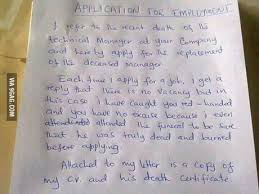 APPLICATION FOR EMPLOYMENT
I refer to the recent death of the
technical Manager at your Company
and hereby apply for the replacement
of the deceased manager.
Each time I apply for a job, I get a
reply that there is no vacancy but in
this case I have caught you red-handed
and you have no excuse because I even
attended the funeral to be sure
that he was truly dead and buried
before applying.
Attached to my letter is a copy of
my C.V. and his death certificate.
VIA 9GAG.COM